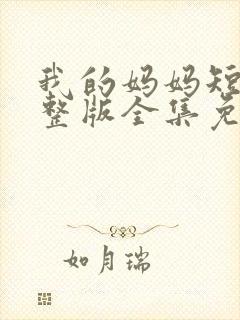 我的妈妈短
整版全集免
如月瑞